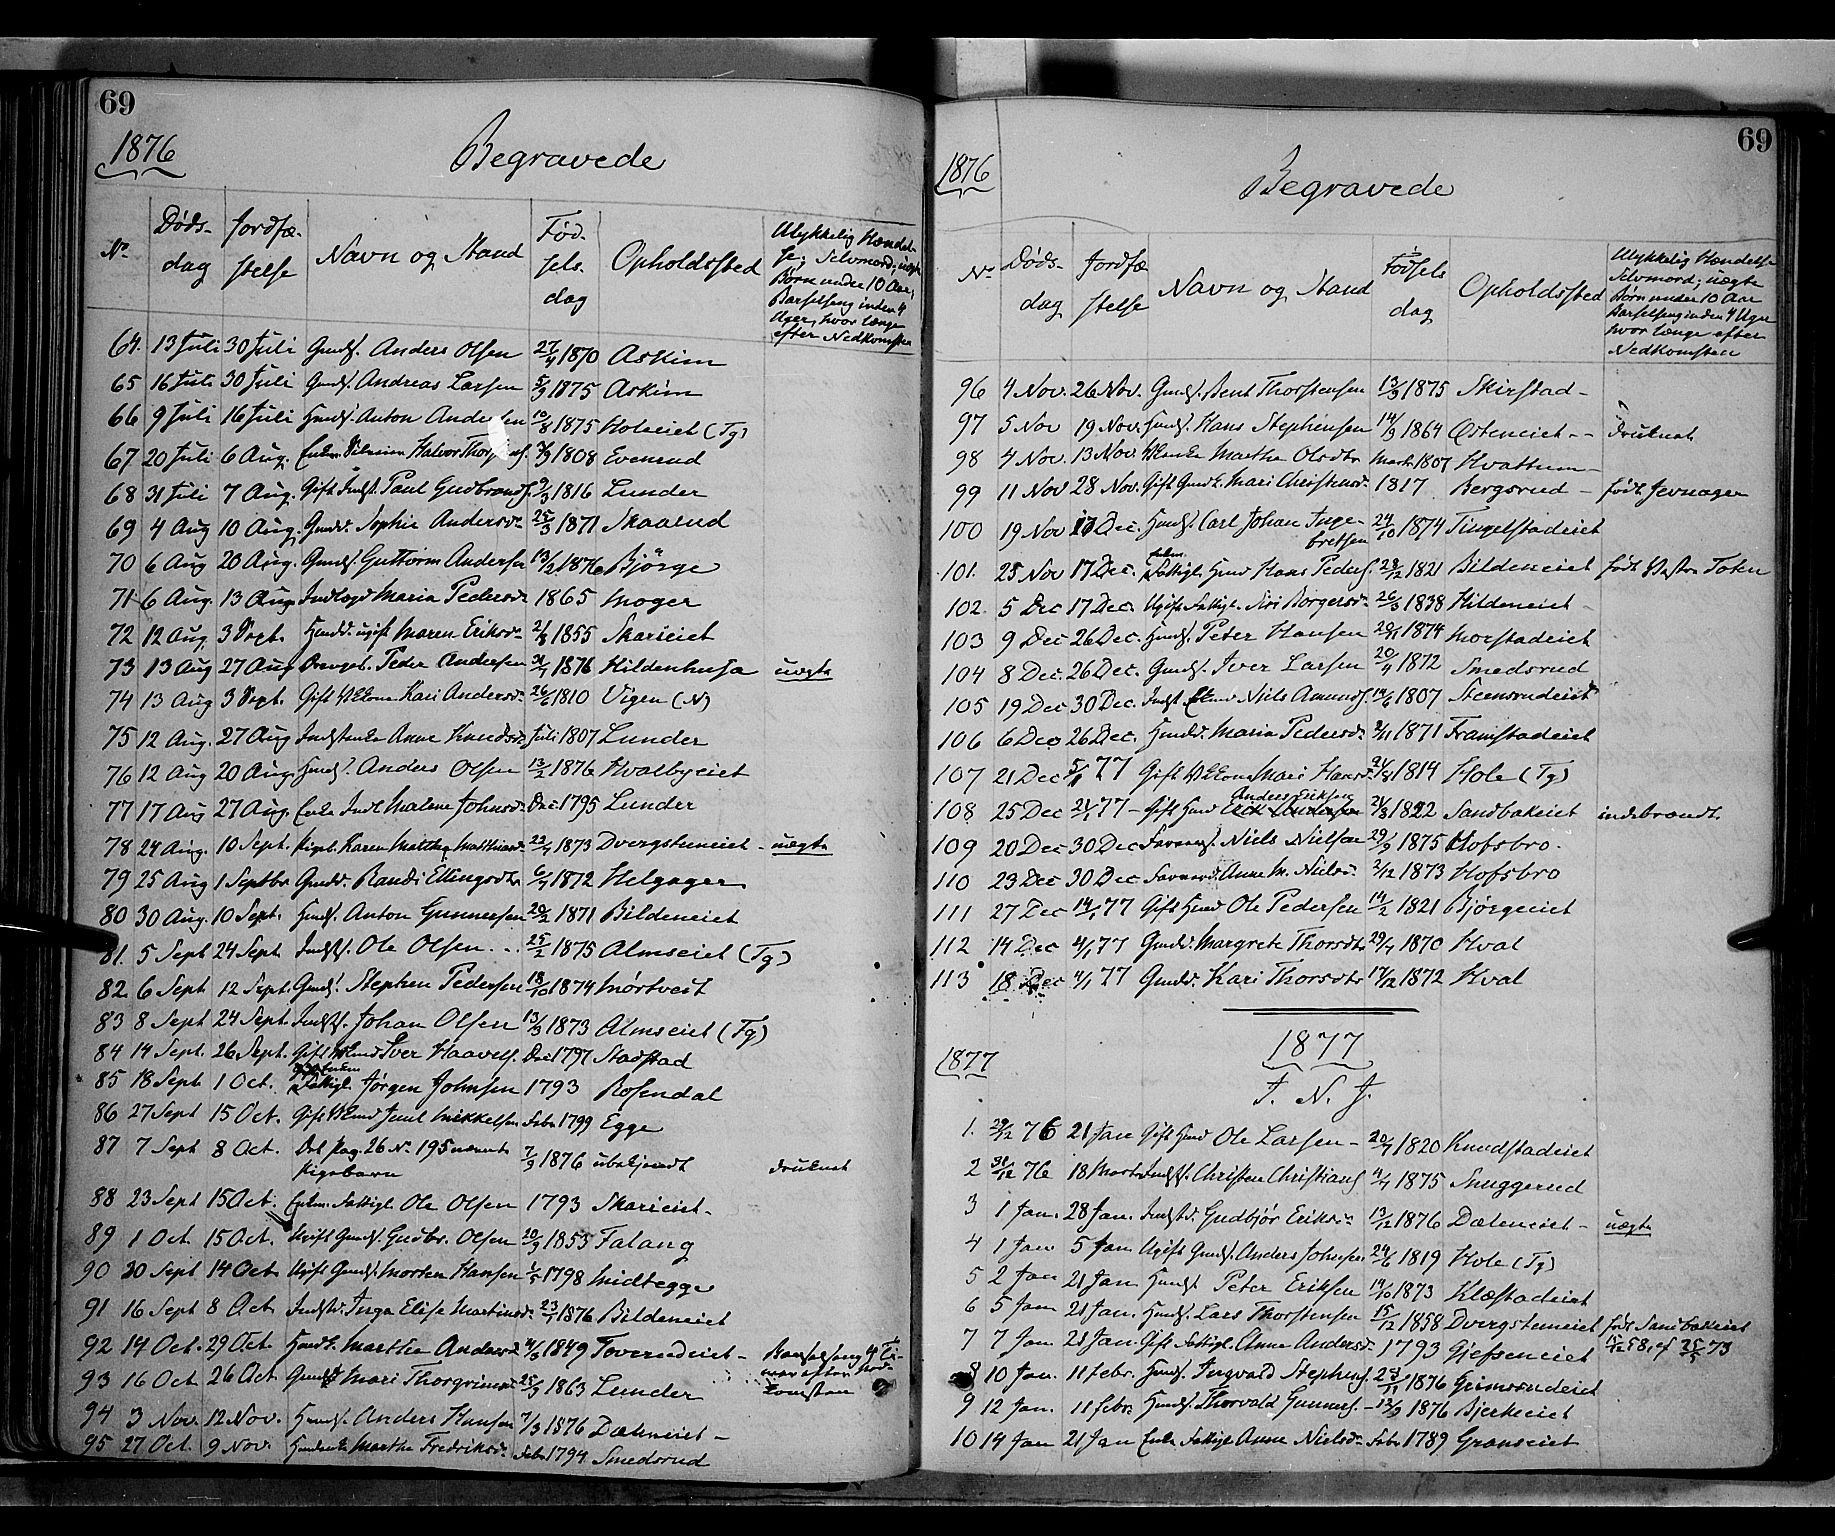 69
1876
Begravede
No Dødsdag Jordfæstelse Navn og Stand Fødselsdag Opholdssted Ulykkelig Hændelse; Selvmord; uægte Børn under 10 Aar; Barselseng inden 4 Uger, hvor længe efter Nedkomsten
64. 13 Juli 30 Juli Gmds. Anders Olsen 27/4 1870 Askim
65 16 Juli 30 Juli Gmds. Andreas Larsen 5/3 1875 Askim
66 9 Juli 16 Juli Husms. Anton Andersen 10/8 1875 Holeeiet (Tg)
67 20 Juli 6 Aug. Halvor 1808 Evenrud
68 31 Juli 7 Aug. Gift Indst. Paul Gudbrands. 2/3 1816 Lunder
69 4 Aug 10 Aug. Gmdd. Sophie Andersdr 25/5 1871 Skaarud
70 6 Aug 20 Aug. Gmds. Guttorm Andersen 13/2 1876 Bjørge
71 6 Aug. 13 Aug. Indlagd Maria Pedersdr 1865 Moger
72 12 Aug. 3 Sept. Husmd. ugift Maren Eriksdr 1855 Skarieiet
73 13 Aug 27 Aug Peder Andersen 1876 Hildenhusa uægte
74 13 Aug 3 Sept. Gift Kari Andersdr 26/6 1810 Vigen (N)
75 12 Aug. 27 Aug Indstenke Anne Knudsdr Juli 1807 Lunder
76 12 Aug 20 Aug. Husms. Anders Olsen 13/2 1876 Hvalbyeiet
77 17 Aug 27 Aug. Enke Indl Malene Johnsdr Dec 1795 Lunder
78 24 Aug. 10 Sept. Pigeb. Karen Mathea 22/4 1873 Dvergsteneiet - uægte
79 25 Aug 1 Septbr Gmdd. Randi Ellingsdtr 6/4 1872 Helgager
80 30 Aug. 10 Sept. Husms. Anton Gunnersen 20/2 1871 Bildeneiet
81. 5 Sept 24 Sept. Indsts. Ole Olsen 25/2 1875 Almseiet (Tg)
82 6 Sept 12 Sept. Gmds. Stephen Pedersen 18/10 1874 Mørtvedt
83 8 Sept 24 Sept. Indsts. Johan Olsen 13/3 1873 Almseiet (Tg)
84 14 Sept. 26 Sept. Gift Iver Haavels. Dec 1797 Stadstad
85 18 Sept 1 Oct. Fattigl. Jørgen Johnsen 1793 Rosendal
86 27 Sept 15 Oct. Gift Mikkelsen Febr 1799 Egge
87 7 Sept 8 Oct. Det Pag. 26 No 195 nævnte 7/9 1876 ubekjendt druknet
Pigebarn
88 23 Sept 15 Oct. Enkm. Fattigl. Ole Olsen 1793 Skarieiet -
89 1 Oct. 15 Oct. Ugift Gmds. Gudbr. Olsen 20/3 1853 Falang
90 30 Sept 14 Oct Ugift Gmds. Morten Hansen 1798 Midtegge
91 16 Sept 8 Oct Indstd. Inga Elise Martinsdr 23/1 1876 Bildeneiet
92 14 Oct. 29 Oct Husmk. Marthe Andersdr 1849 Toverudeiet - Barselseng 4 Timer efter Nedkomsten
93 16 Oct. 26 Oct Gmdd Mari Thorgrimsdr 25/3 1863 Lunder
94 3 Nov. 12 Nov. Husms. Anders Hansen 7/3 1876 Dæleneiet -
95 27 Oct. 9 Nov. Husmenke Marthe Fredriksdr Febr 1794 Smedsrud
69
1876
Begravede
No Dødsdag Jordfæstelse Navn og Stand Fødselsdag Opholdssted Ulykkelig Hændelse Selvmord; uægte Børn under 10 Aar Barselseng inden 4 Uger hvor længe efter Nedkomsten
96 4 Nov. 26 Nov. Gmds. Bent Thorstensen 13/3 1875 Skirstad -
97 5 Nov 19 Nov. Husms. Hans Stephensen 14/3 1864 Østeneiet - - druknet
98 4 Nov. 13 Nov Marthe Olsdtr Marts 1807 Hvattum -
99 11 Nov 28 Nov. Gift Gmdk. Mari Christensdr 1817 Bergsrud - født Jevnager
100 19 Nov 17 Dec. Husms. Carl Johan Ingebretsen 24/10 1874 Tingelstadeiet
101. 25 Nov 17 Dec. Fattigl. Husmd Hans Peders. 28/12 1821 Bildeneiet født Vestre Toten
102. 5 Dec 17 Dec. Ugift Fattigl. Siri Børgersdr 26/3 1838 Hildeneiet
103 9 Dec 26 Dec. Husms. Peter Hansen 20/11 1874 Morstadeiet
104 8 Dec. 26 Dec. Gmds. Iver Larsen 20/4 1872 Smedsrud
105 19 Dec 30 Dec. Indst Niels Amunds. 1807 Steensrudeiet
106 6 Dec 26 Dec. Husmd. Maria Pedersdr 1871 Framstadeiet
107 21 Dec 5/1 77 Gift Mari Hansdr 21/8 1814 Hole (Tg)
108 25 Dec 21/1 77 - Gift Husmd Anders Eriksen 21/8 1822 Sandbakeiet indebrændt
109 20 Dec 30 Dec Niels Nielsen 29/9 1875 Hofsbro.
110 23 Dec 30 Dec Anne M. Nielsdr 2/12 1873 Hofsbro
111 27 Dec 14/1 77 Gift Husmd Ole Pedersen 14/2 1821 Bjørgeeiet
112 14 Dec 4/1 77 Gmdd. Margrete Thorsdtr 29/4 1870 Hval
113 18 Dec 4/1 77 Gmdd. Kari Thorsdtr 17/12 1872 Hval
1877
1877
I. N. J.
1. 29/12 76 21 Jan Gift Husmd Ole Larsen - 20/7 1820 Knudstadeiet
2 31/12 76 18 Marts Indsts. Christen Christians 1875 Snuggerud
3 1 Jan. 28 Jan. Indstd. Gudbjør Eriksdr 13/12 1876 Dæleneiet - uægte
4 1 Jan 5 Jan Ugift Gmds. Anders Johnsen 24/6 1819 Hole (Tg)
5 2 Jan 21 Jan Husms Peter Eriksen 19/10 1873 Klæstadeiet
6 5 Jan 21 Jan. Husms. Lars Thorstensen 15/12 1858 Dvergsteneiet født Sandbakeiet 15/12 58,
7 7 Jan 28 Jan. Gift Fattigl. Anne Andersdr 1793 Gjefseneiet
8 10 Jan. 11 Febr. Husms. Ingvard Stephens. 28/11 1876 Grimsrudeiet
9 12 Jan. 11 Febr. Husms. Thorvald Gunners. - 1876 Bjerkeeiet
10 14 Jan 21 Jan Enke Fattigl. Anne Nielsdr Febr 1789 Granseiet